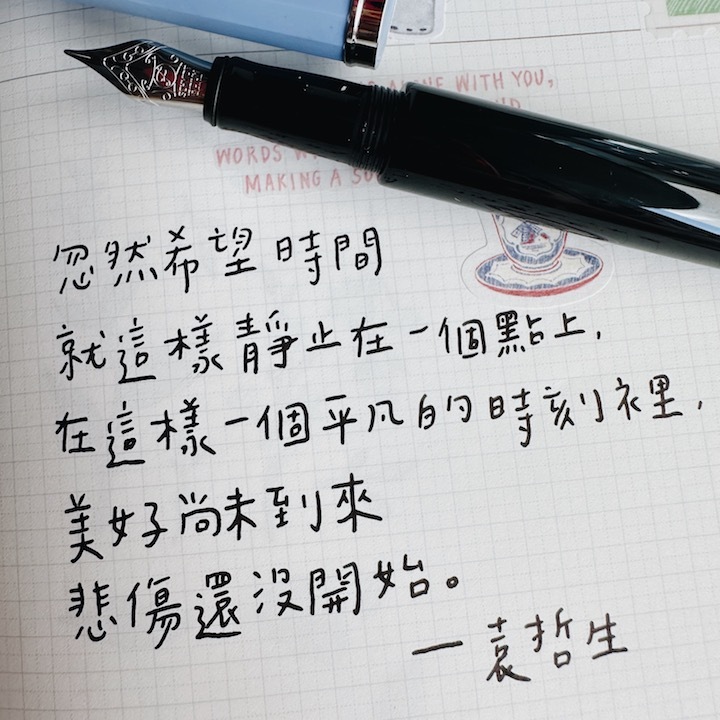 ALONE WITH YOU,
WORDS
MAKING A
忽然希望時間
就這樣靜止在一個點上,
在這樣一個平凡的時刻裡,
美好尚未到來
悲傷還沒開始。
一袁哲生